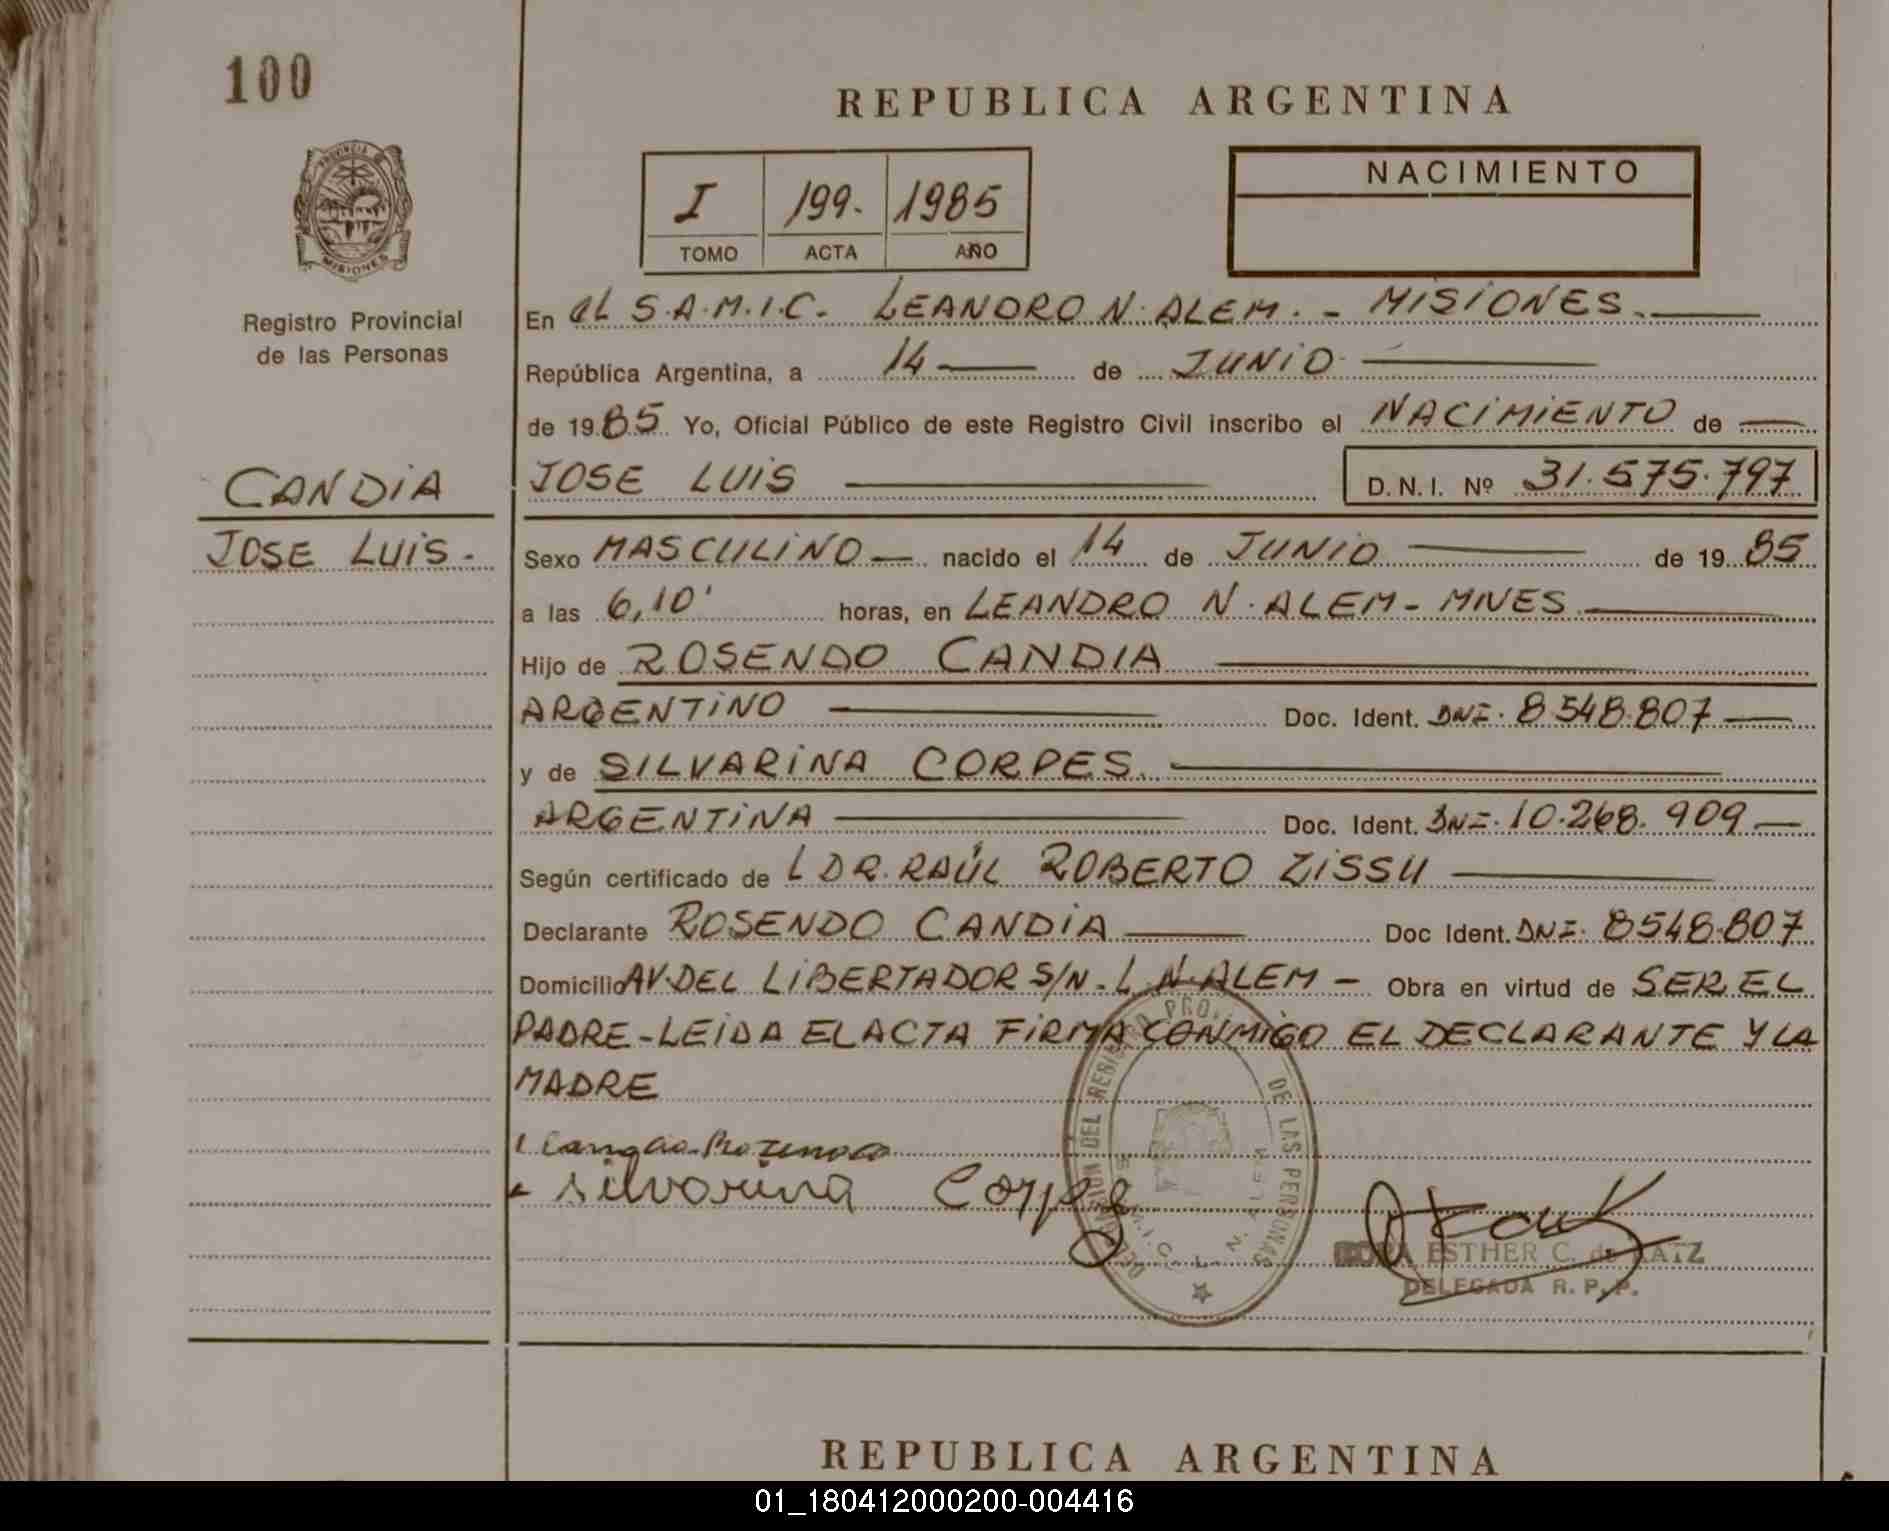 100
REPUBLICA ARGENTINA
PROVINCIA
MISIONES
NACIMIENTO
I 199. 1985
TOMO ACTA AÑO
Registro Provincial
de las Personas
En el S.A.M.I.C. LEANDRO N. ALEM. - MISIONES.
República Argentina, a 14 de JUNIO
de 1985 Yo, Oficial Público de este Registro Civil inscribo el NACIMIENTO de
CANDIA
JOSE LUIS D.N.I. Nº 31.575.797
JOSE LUIS.
Sexo MASCULINO nacido el 14 de JUNIO de 1985
a las 6,10' horas, en LEANDRO N. ALEM - MNES
Hijo de ROSENDO CANDIA
ARGENTINO Doc. Ident. DNI. 8548.807
y de SILVARINA CORPES
ARGENTINA Doc. Ident. DNI. 10.268.909
Según certificado de L DR. RAÚL ROBERTO ZISSU
Declarante ROSENDO CANDIA Doc Ident. DNI. 8548.807
Domicilio AV. DEL LIBERTADOR S/N - L.N. ALEM - Obra en virtud de SER EL
PADRE - LEIDA EL ACTA FIRMA CONMIGO EL DECLARANTE Y LA
MADRE
silvarina Corpe
DE LAS PERSONAS
S.A.M.I.C. L. N. ALEM
ESTHER C. de KATZ
DELEGADA R. P. P.
REPUBLICA ARGENTINA
01_180412000200-004416